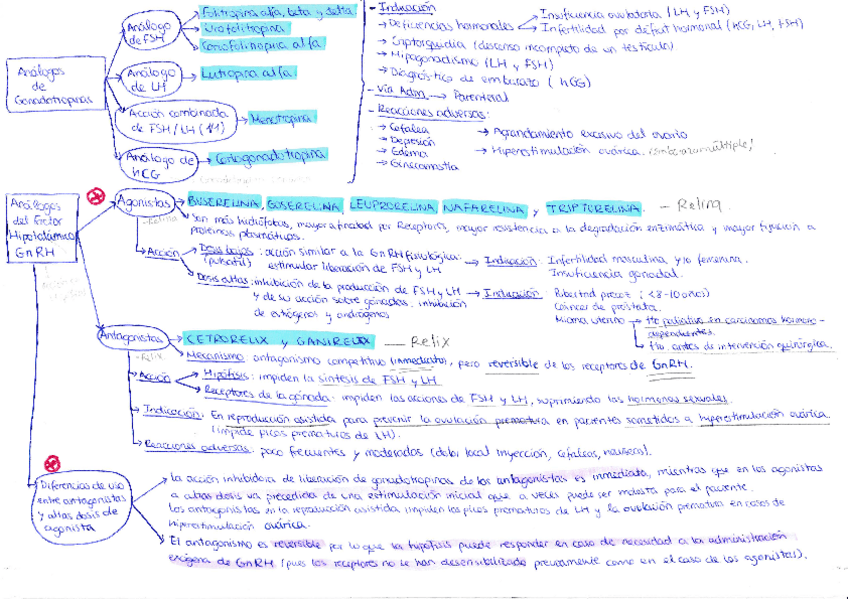 Análogos
de
Gonadotropinas
Análogo
de FSH
Folitropina alfa, beta y delta
Urofolitropina
Corifolitropina alfa
Análogo
de LH
Lutropina alfa.
Acción combinada
de FSH/LH (1:1)
Menotropina.
Análogo de
hCG
Coriogonadotropina
- Indicación
→ Deficiencias hormonales
Insuficiencia ovulatoria (LH y FSH)
Infertilidad por déficit hormonal (hCG, LH, FSH)
→ Criptorquidia (descenso incompleto de un testículo)
→ Hipogonadismo (LH y FSH)
→ Diagnóstico de embarazo (hCG)
- Vía Adm. → Parenteral
- Reacciones adversas:
→ Cefalea
→ Depresión
→ Edema
→ Ginecomastia
→ Agrandamiento excesivo del ovario
→ Hiperestimulación ovárica. (embarazo múltiple)
Análogos
del Factor
Hipotalámico
GnRH
Agonistas
- Relina
BUSERELINA, GOSERELINA, LEUPRORELINA, NAFARELINA y TRIPTORELINA. - Relina
Son más hidrófobas, mayor afinidad por Receptores, mayor resistencia a la degradación enzimática y mayor fijación a
proteínas plasmáticas.
Acción
Dosis bajas: acción similar a la GnRH fisiológica:
(pulsátil) estimular liberación de FSH y LH
→ Indicación: Infertilidad masculina y/o femenina.
Insuficiencia gonadal.
Dosis altas: inhibición de la producción de FSH y LH
y de su acción sobre gónadas: inhibición
de estrógenos y andrógenos
→ Indicación: Pubertad precoz: (<8-10 años)
Cáncer de próstata.
Mioma uterino
tto paliativo en carcinomas hormono-
dependientes.
tto. antes de intervención quirúrgica.
Antagonistas
- Relix
CETRORELIX y GANIRELIX - Relix
Mecanismo antagonismo competitivo (inmediato), pero reversible de los receptores de GnRH.
Acción
Hipófisis: impiden la síntesis de FSH y LH
Receptores de la gónada: impiden las acciones de FSH y LH, suprimiendo las hormonas sexuales.
Indicación: En reproducción asistida para prevenir la ovulación prematura en pacientes sometidos a hiperestimulación ovárica.
(impide picos prematuros de LH).
Reacciones adversas: poco frecuentes y moderados (dolor local inyección, cefaleas, náuseas).
Diferencias de uso
entre antagonistas
y altas dosis de
agonista
La acción inhibidora de liberación de gonadotropinas de los antagonistas es inmediata, mientras que en los agonistas
a altas dosis va precedida de una estimulación inicial que a veces puede ser molesta para el paciente.
Los antagonistas en la reproducción asistida impiden los picos prematuros de LH y la ovulación prematura en casos de
hiperestimulación ovárica.
El antagonismo es reversible por lo que la hipófisis puede responder en caso de necesidad a la administración
exógena de GnRH (pues los receptores no se han desensibilizado previamente como en el caso de los agonistas).